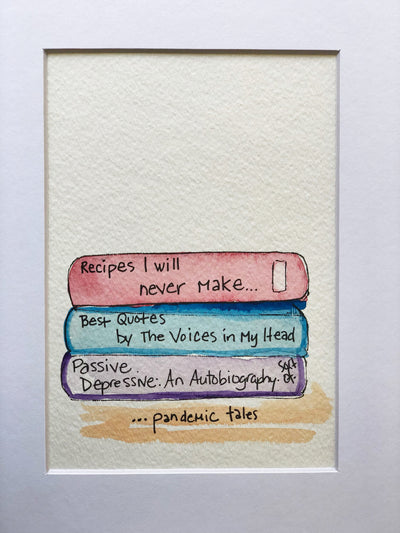 Recipes I will
never make...
Best Quotes
by The Voices in My Head
Passive
Depressive. An Autobiography. Sort of.
...pandemic tales